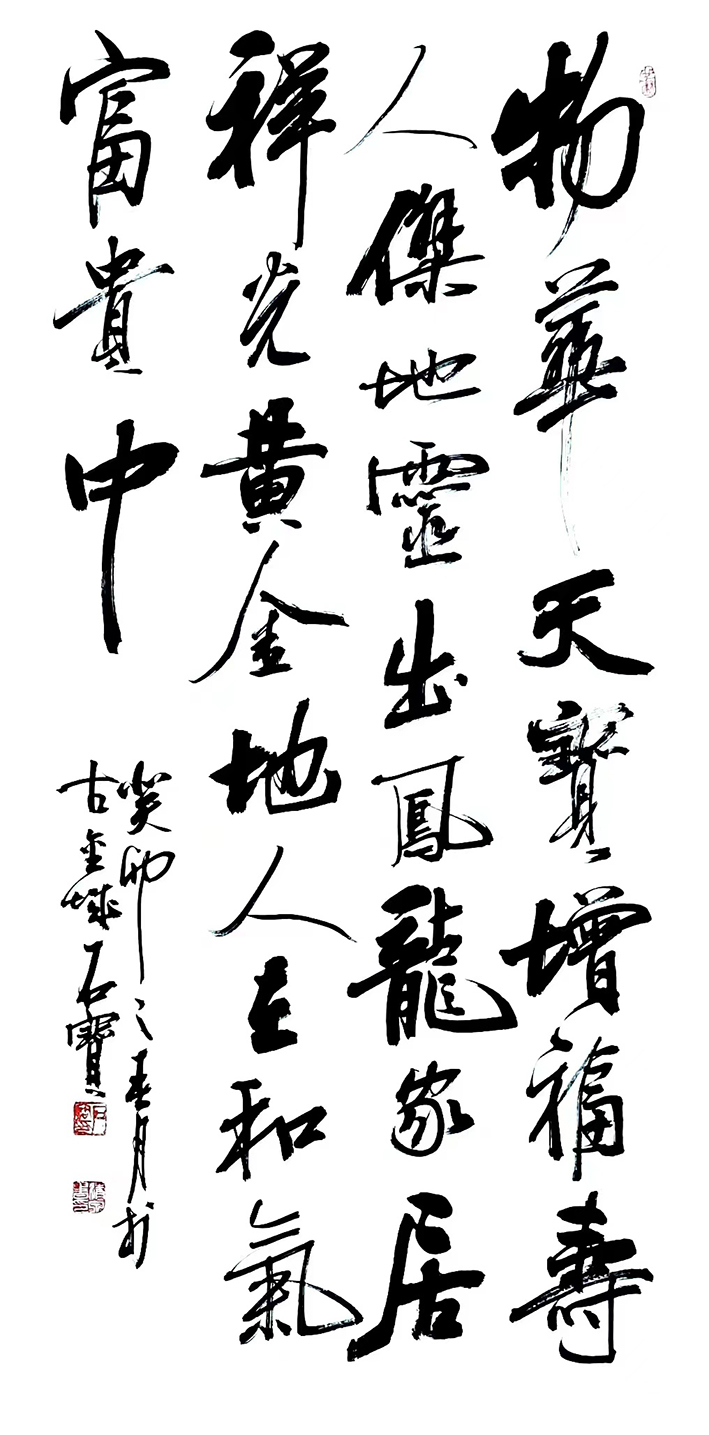 物華天寶增福壽
人傑地靈出鳳龍家居
祥光黃金地人在和氣
富貴中
癸卯之春月於
古金城石寶